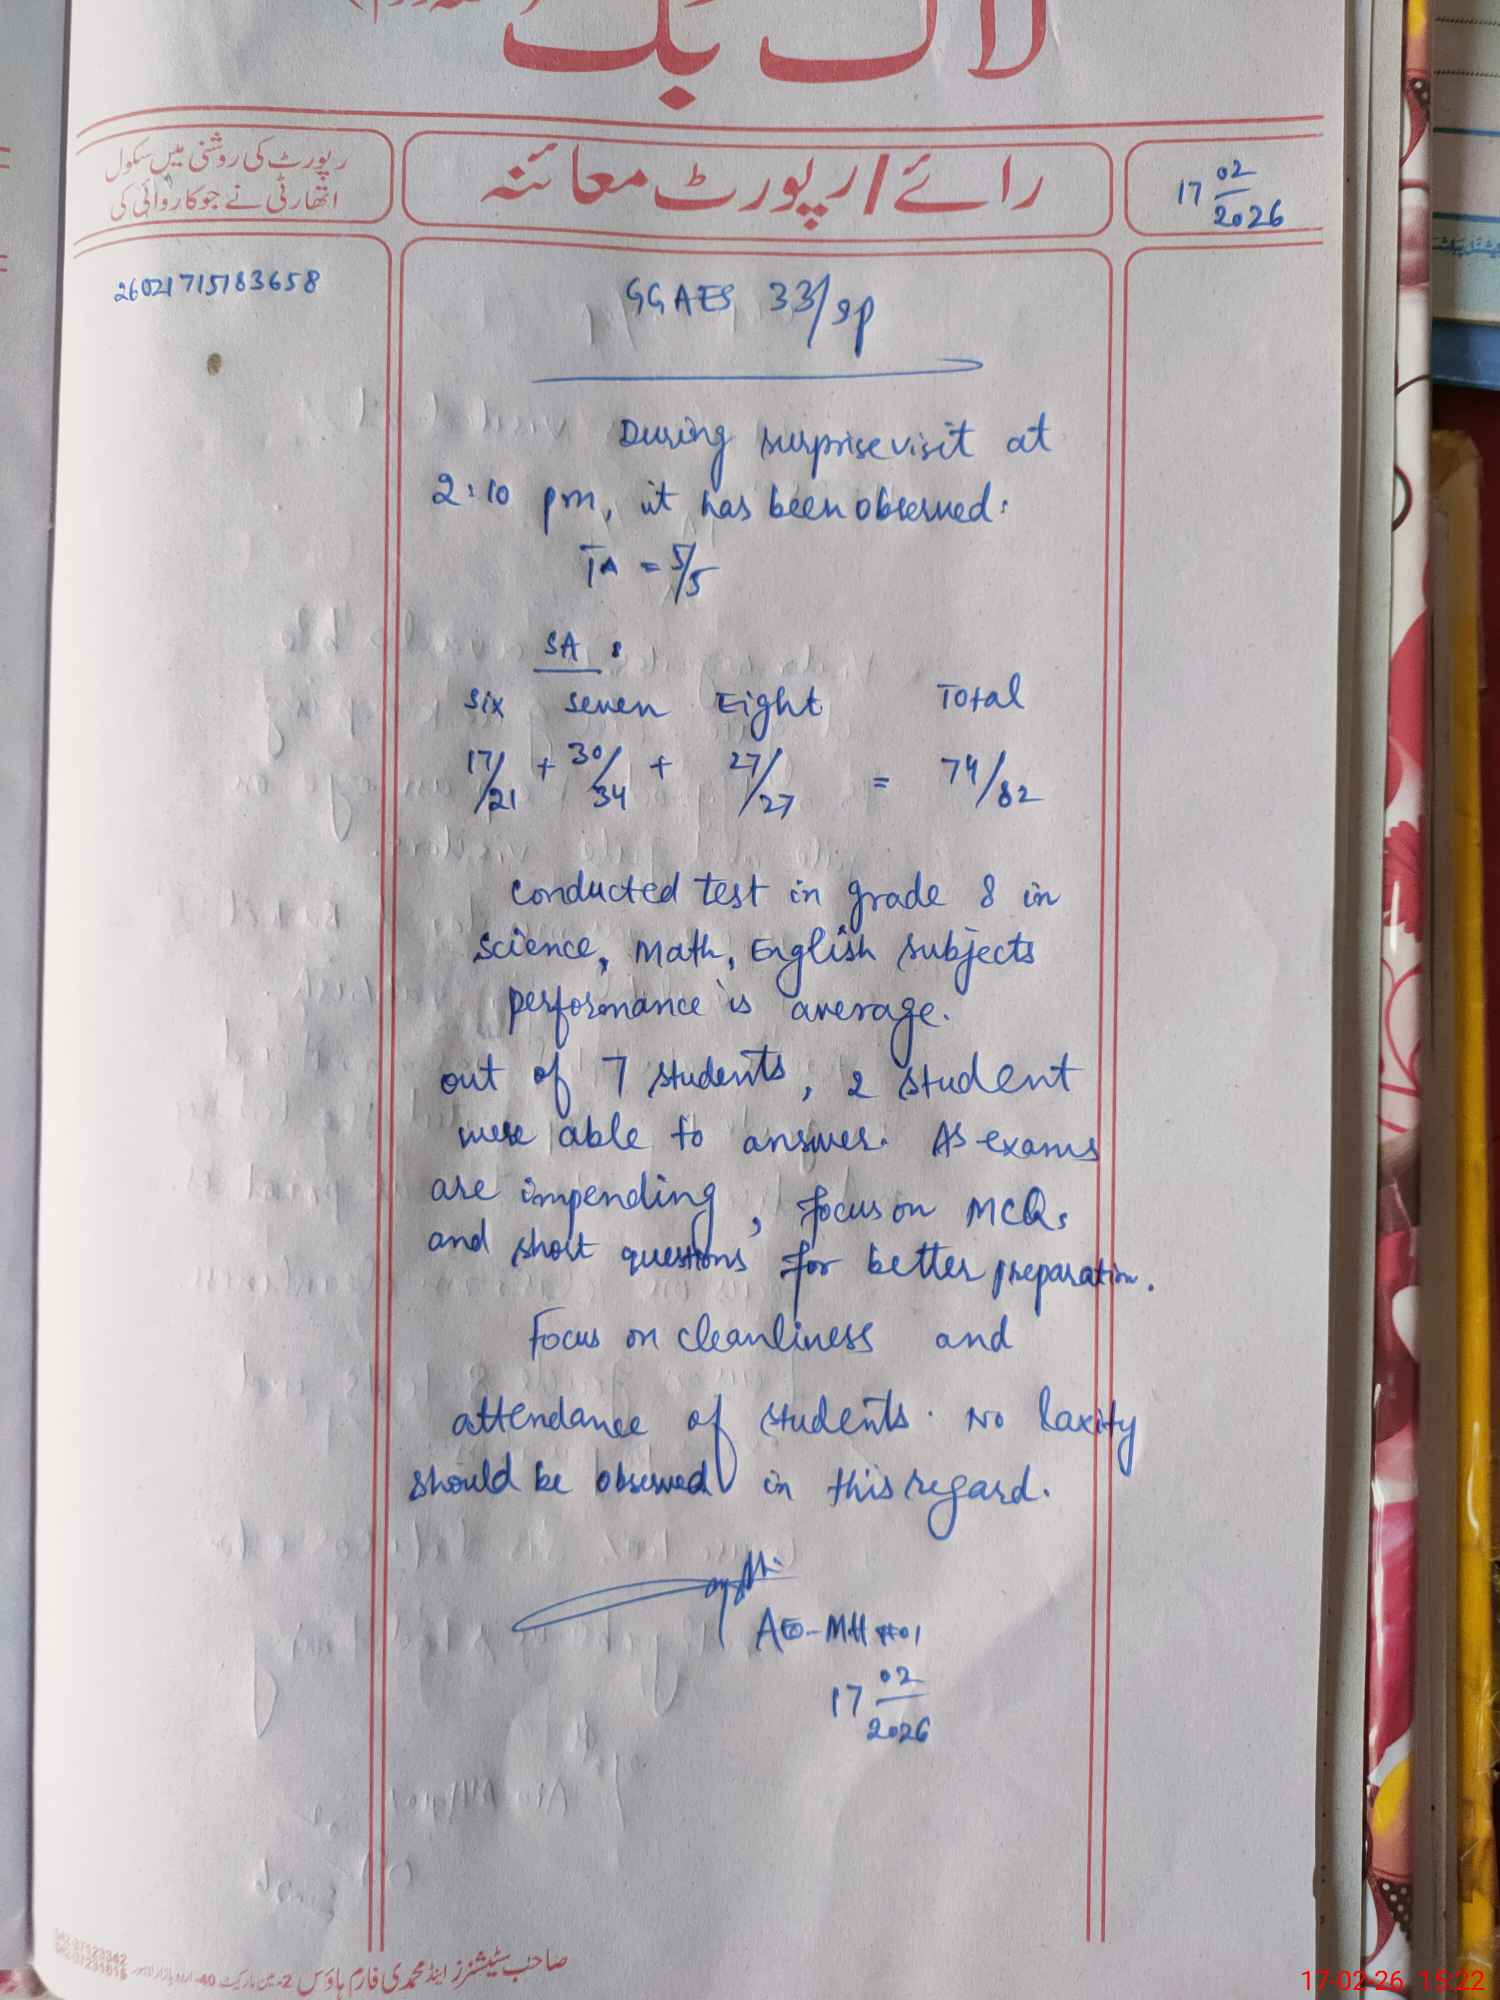 لاگ بک
رپورٹ کی روشنی میں سکول
اتھارٹی نے جو کاروائی کی
رائے / رپورٹ معائنہ
17 02
2026
26021715183658
GGAES 33/sp
During surprise visit at
2:10 pm, it has been observed:
TA = 5/5
SA :
Six Seven Eight Total
17/21 + 30/34 + 27/27 = 74/82
Conducted test in grade 8 in
Science, Math, English subjects
performance is average.
out of 7 students, 2 student
were able to answer. As exams
are impending, focus on MCQs
and short questions for better preparation.
Focus on cleanliness and
attendance of students. No laxity
should be observed in this regard.
AEO-MH #01
17 02
2026
صاحب سٹیشنرز اینڈ محمدی فارم ہاؤس 2-مین مارکیٹ 40-اردو بازار لاہور
17-02-26 15:22